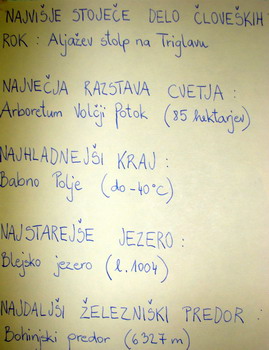 NAJVIŠJE STOJEČE DELO ČLOVEŠKIH
ROK : Aljažev stolp na Triglavu
NAJVEČJA RAZSTAVA CVETJA :
Arboretum Volčji Potok (85 hektarjev)
NAJHLADNEJŠI KRAJ :
Babno Polje (do -40°C)
NAJSTAREJŠE JEZERO :
Blejsko jezero (l. 1004)
NAJDALJŠI ŽELEZNIŠKI PREDOR :
Bohinjski predor (6327 m)